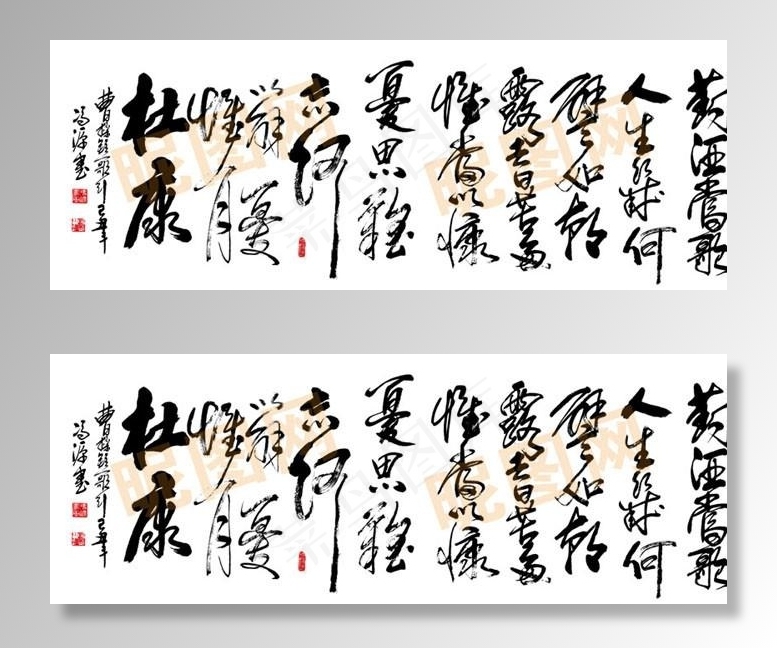 對酒當歌
人生幾何
譬如朝
露去日苦多
慨當以慷
憂思難
忘何
以解憂
惟有
杜康
曹操短歌行己丑年
冯源书
昵图网
昵图网
對酒當歌
人生幾何
譬如朝
露去日苦多
慨當以慷
憂思難
忘何
以解憂
惟有
杜康
曹操短歌行己丑年
冯源书
昵图网
昵图网